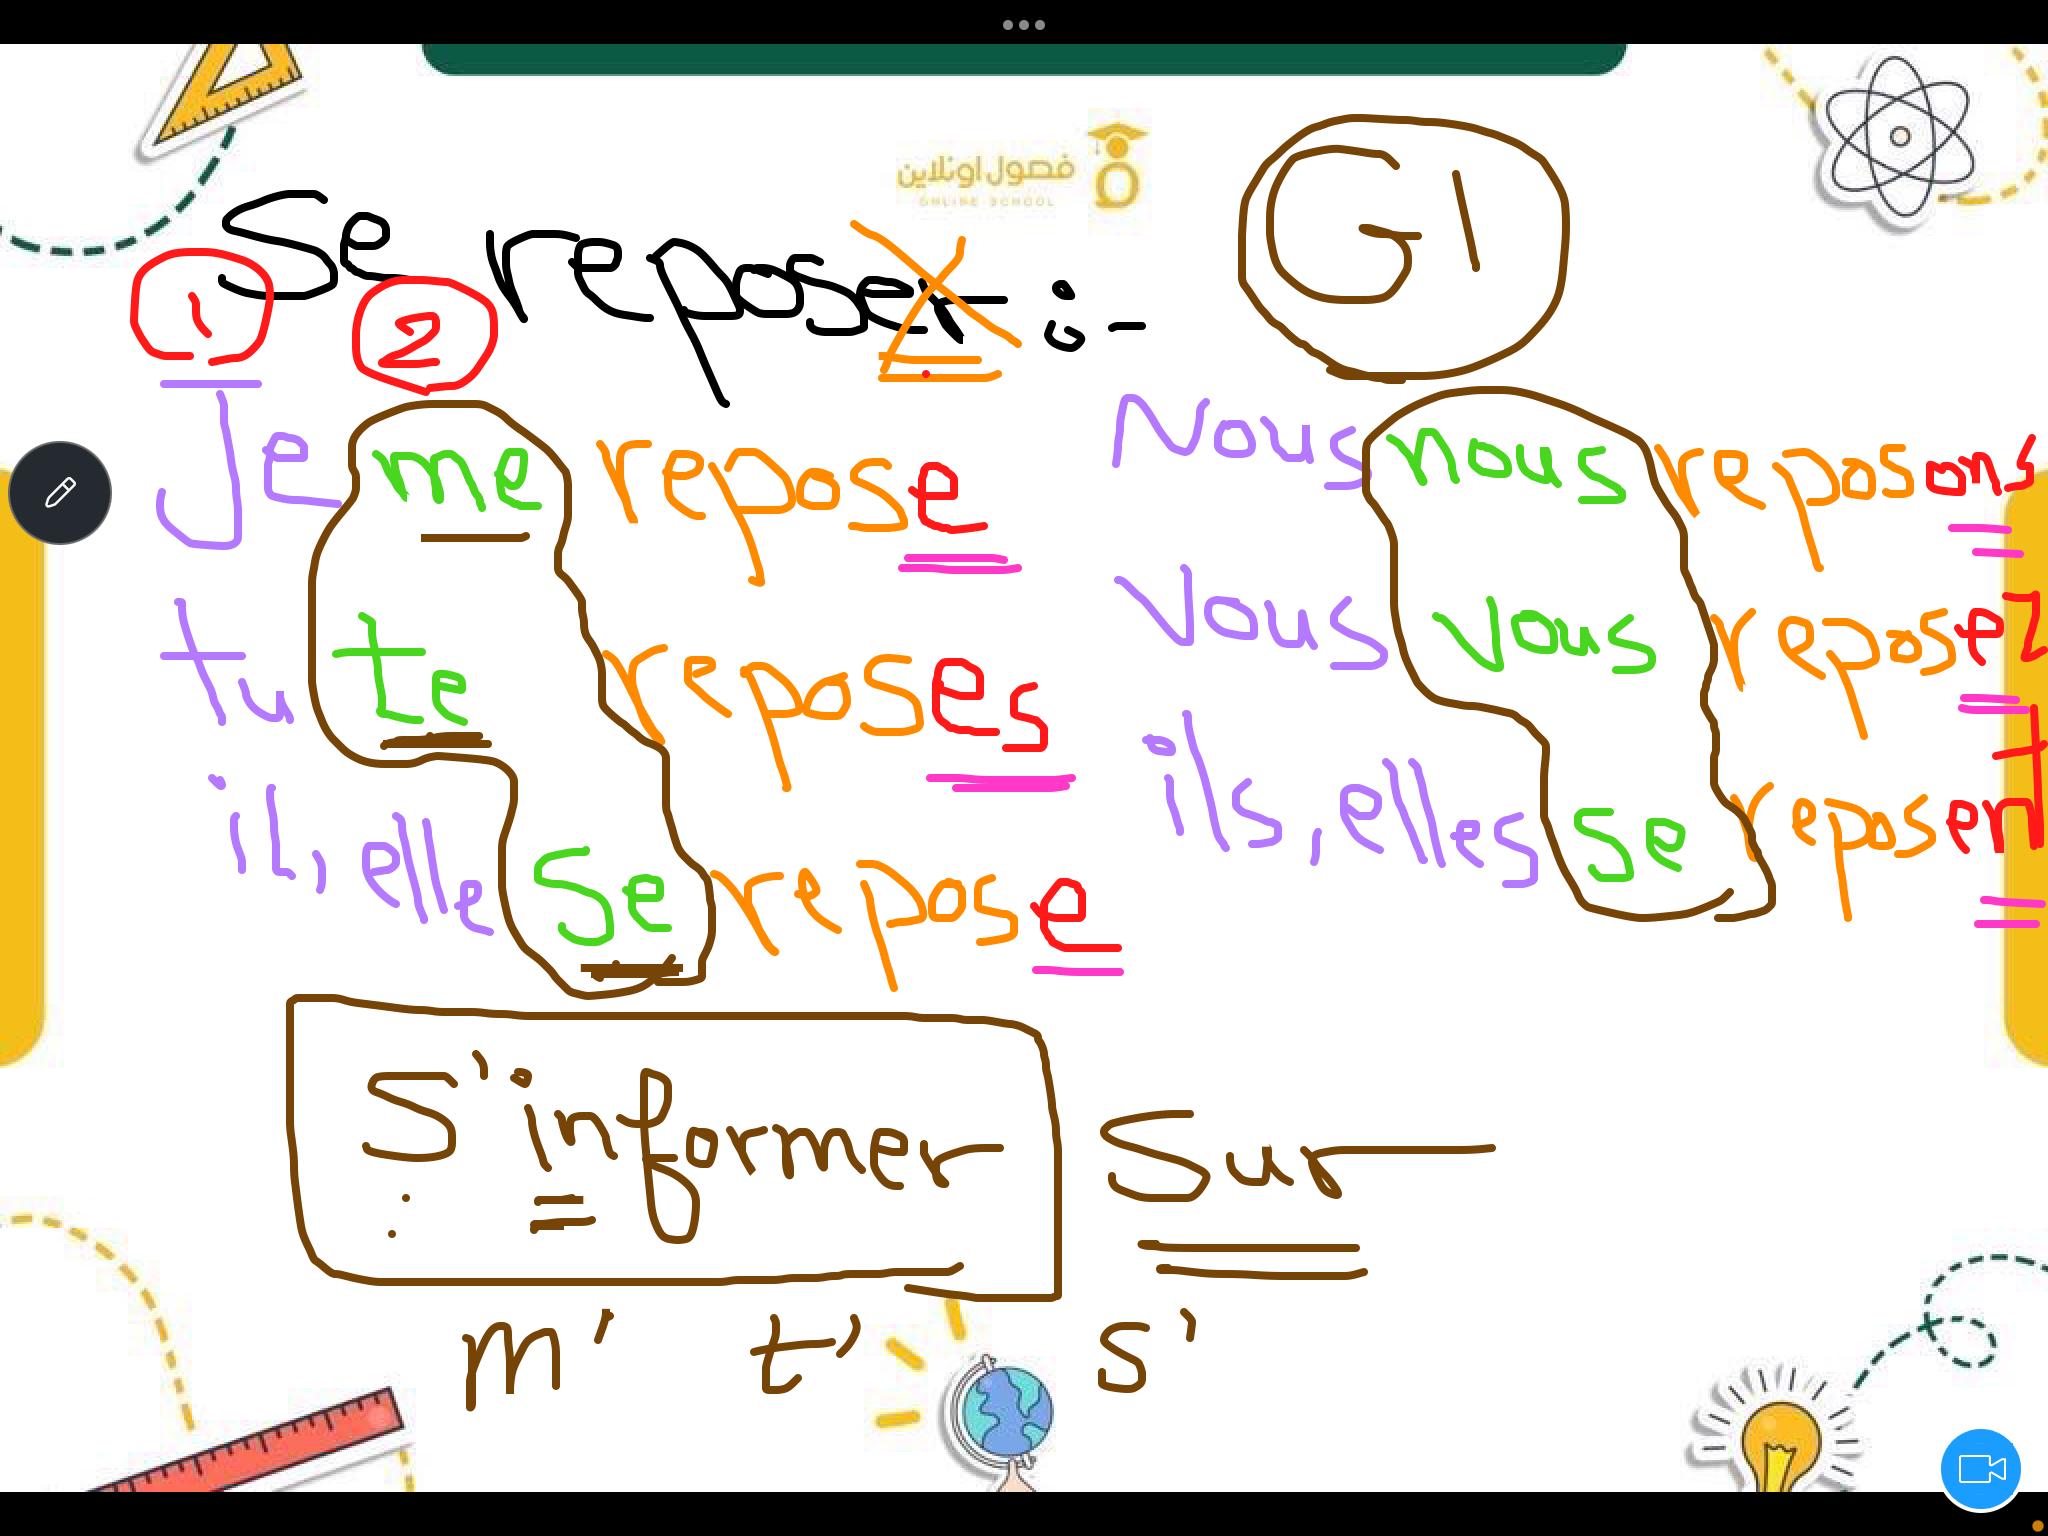 فصول اونلاين
ONLINE SCHOOL
G1
Se reposer :-
1
2
Je me repose
tu te reposes
il, elle se repose
Nous nous reposons
Vous vous reposez
ils, elles se reposent
S'informer sur
m' t' s'